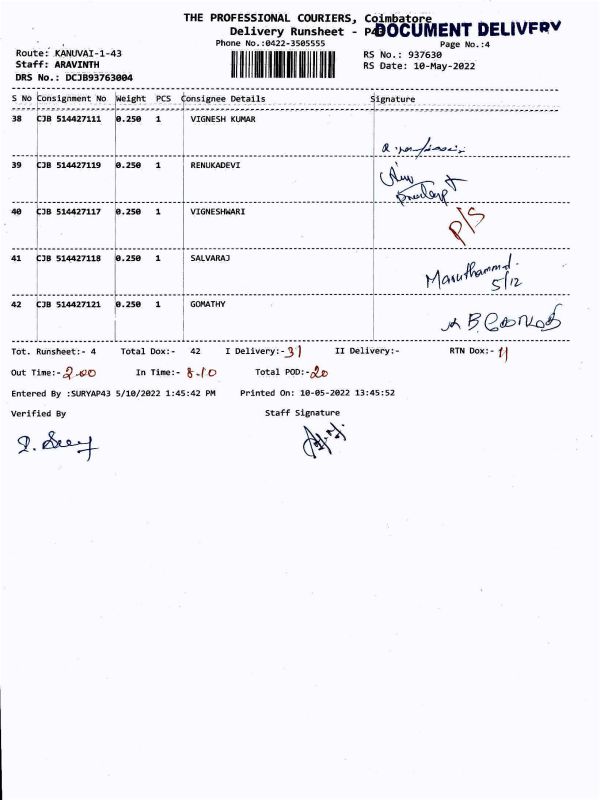 THE PROFESSIONAL COURIERS, Coimbatore
Delivery Runsheet - P43
DOCUMENT DELIVERY
Phone No.:0422-3505555
Page No.:4
Route: KANUVAI-1-43
RS No.: 937630
Staff: ARAVINTH
RS Date: 10-May-2022
DRS No.: DCJB93763004
S No Consignment No Weight PCS Consignee Details Signature
38 CJB 514427111 0.250 1 VIGNESH KUMAR
39 CJB 514427119 0.250 1 RENUKADEVI
40 CJB 514427117 0.250 1 VIGNESHWARI P/S
41 CJB 514427118 0.250 1 SALVARAJ
5/12
42 CJB 514427121 0.250 1 GOMATHY
Tot. Runsheet:- 4 Total Dox:- 42 I Delivery:- 31 II Delivery:- RTN Dox:- 11
Out Time:- 2.00 In Time:- 8.10 Total POD:- 20
Entered By :SURYAP43 5/10/2022 1:45:42 PM Printed On: 10-05-2022 13:45:52
Verified By Staff Signature